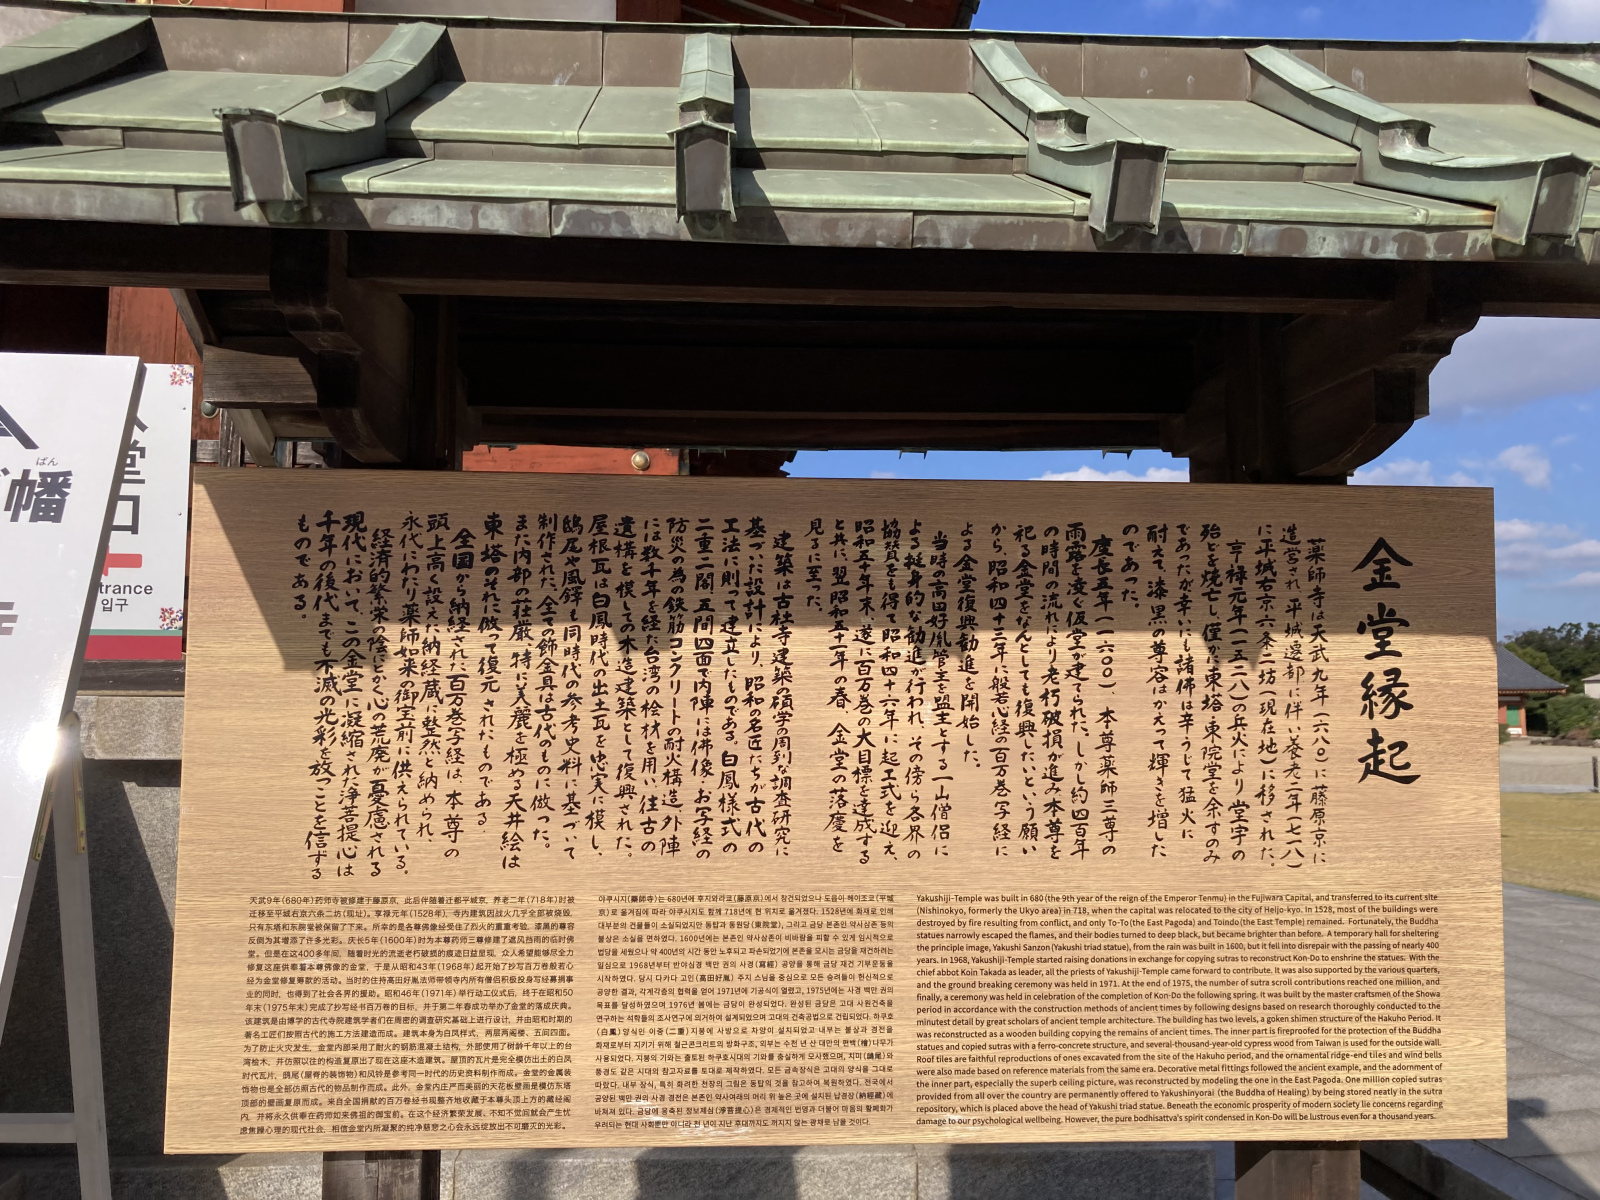 金堂縁起
薬師寺は天武九年(六八〇)に藤原京に
造営され、平城遷都に伴い養老二年(七一八)
に平城右京六条二坊(現在地)に移された。
享禄元年(一五二八)の兵火により堂宇の
殆どを焼亡し僅かに東塔・東院堂を余すのみ
であったが幸いにも諸佛は辛うじて猛火に
耐えて、漆黒の尊容はかえって輝きを増した
のであった。
慶長五年(一六〇〇)、本尊薬師三尊の
雨露を凌ぐ仮堂が建てられた。しかし約四百年
の時間の流れにより老朽破損が進み本尊を
祀る金堂をなんとしても復興したいという願い
から、昭和四十三年に般若心経の百万巻写経に
よる金堂復興勧進を開始した。
当時の高田好胤管主を盟主とする一山僧侶に
よる挺身的な勧進が行われ、その傍ら各界の
協賛をも得て昭和四十六年に起工式を迎え、
昭和五十年末、遂に百万巻の大目標を達成する
と共に、翌昭和五十一年の春、金堂の落慶を
見るに至った。
建築は古社寺建築の碩学の周到な調査研究に
基づいた設計により、昭和の名匠たちが古代の
工法に則って建立したものである。白鳳様式の
二重二閣、五間四面で内陣には佛像・お写経の
防災の為の鉄筋コンクリートの耐火構造、外陣
には数千年を経た台湾の桧材を用い、往古の
遺構を模しての木造建築として復興された。
屋根瓦は白鳳時代の出土瓦を忠実に模し、
鴟尾や風鐸も同時代の参考史料に基づいて
制作された。全ての飾金具は古代のものに倣った。
また内部の荘厳、特に美麗を極める天井絵は
東塔のそれに倣って復元されたものである。
全国から納経された百万巻写経は、本尊の
頭上高く設えた納経蔵に整然と納められ、
永代にわたり薬師如来の御宝前に供えられている。
経済的繁栄の陰にかく心の荒廃が憂慮される
現代において、この金堂に凝縮された浄菩提心は
千年の後代までも不滅の光彩を放つことを信ずる
ものである。
天武9年(680年)药师寺被修建于藤原京, 此后伴随着迁都平城京, 养老二年(718年)时被
迁移至平城右京六条二坊(现址)。享禄元年(1528年), 寺内建筑因战火几乎全部被烧毁,
只有东塔和东院堂被保留了下来。所幸的是各尊佛像经受住了烈火的重重考验, 漆黑的尊容
反倒为其增添了许多光彩。庆长5年(1600年)时为本尊药师三尊修建了遮风挡雨的临时佛
堂。但是在这400多年间, 随着时光的流逝老朽破损的痕迹日益显现, 众人希望能够尽全力
修复这座供奉着本尊佛像的金堂, 于是从昭和43年(1968年)起开始了抄写百万卷般若心
经为金堂修复筹款的活动。当时的住持高田好胤法师带领寺内所有僧侣积极投身写经募捐事
业的同时, 也得到了社会各界的援助。昭和46年(1971年)举行动工仪式后, 终于在昭和50
年末(1975年末)完成了抄写经书百万卷的目标, 并于第二年春成功举办了金堂的落成庆典。
该建筑是由博学的古代寺院建筑学者们在周密的调查研究基础上进行设计, 并由昭和时期的
著名工匠们按照古代的施工方法建造而成。建筑本身为白凤样式, 两层两阁楼、五间四面。
为了防止火灾发生, 金堂内部采用了耐火的钢筋混凝土结构, 外部使用了树龄千年以上的台
湾桧木, 并仿照以往的构造复原出了现在这座木造建筑。屋顶的瓦片是完全模仿出土的白凤
时代瓦片, 鸱尾(屋脊的装饰物)和风铃是参考同一时代的历史资料制作而成。金堂的金属装
饰物也是全部仿照古代的物品制作而成。此外, 金堂内庄严而美丽的天花板壁画是模仿东塔
顶部的壁画复原而成。来自全国捐献的百万卷经书现整齐地收藏于本尊头顶上方的藏经阁
内, 并将永久供奉在药师如来佛祖的御宝前。在这个经济繁荣发展、不知不觉间就会产生忧
虑焦躁心理的现代社会, 相信金堂内所凝聚的纯净慈悲之心会永远绽放出不可磨灭的光彩。
아쿠시지(藥師寺)는 680년에 후지와라쿄(藤原京)에서 창건되었으나 도읍이 헤이조쿄(平城
京)로 옮겨짐에 따라 야쿠시지도 함께 718년에 현 위치로 옮겼다. 1528년에 화재로 인해
대부분의 건물들이 소실되었지만 동탑과 동원당(東院堂), 그리고 금당 본존인 약사삼존 등의
불상은 소실을 면하였다. 1600년에는 본존인 약사삼존이 비바람을 피할 수 있게 임시적으로
법당을 세웠으나 약 400년의 시간 동안 노후되고 파손되었기에 본존을 모시는 금당을 재건하려는
일심으로 1968년부터 반야심경 백만 권의 사경(寫經) 공양을 통해 금당 재건 기부운동을
시작하였다. 당시 다카다 고인(高田好胤) 주지 스님을 중심으로 모든 승려들이 헌신적으로
공양한 결과, 각계각층의 협력을 얻어 1971년에 기공식이 열렸고, 1975년에는 사경 백만 권의
목표를 달성하였으며 1976년 봄에는 금당이 완성되었다. 완성된 금당은 고대 사원건축을
연구하는 석학들의 조사연구에 의거하여 설계되었으며 고대의 건축공법으로 건립되었다. 하쿠호
(白鳳)양식인 이중(二重)지붕에 사방으로 차양이 설치되었고 내부는 불상과 경전을
화재로부터 지키기 위해 철근콘크리트의 방화구조, 외부는 수천 년 산 대만의 편백(檜)나무가
사용되었다. 지붕의 기와는 출토된 하쿠호시대의 기와를 충실하게 모사했으며, 치미(鴟尾)와
풍경도 같은 시대의 참고자료를 토대로 제작하였다. 모든 금속장식은 고대의 양식을 그대로
따랐다. 내부 장식, 특히 화려한 천장의 그림은 동탑의 것을 참고하여 복원하였다. 전국에서
공양된 백만 권의 사경 경전은 본존인 약사여래의 머리 위 높은 곳에 설치된 납경장(納經藏)에
바쳐져 있다. 금당에 응축된 정보제심(淨菩提心)은 경제적인 번영과 더불어 마음의 황폐화가
우려되는 현대 사회뿐만 아니라 천 년이 지난 후대까지도 꺼지지 않는 광채로 남을 것이다.
Yakushiji-Temple was built in 680 (the 9th year of the reign of the Emperor Tenmu) in the Fujiwara Capital, and transferred to its current site
(Nishinokyo, formerly the Ukyo area) in 718, when the capital was relocated to the city of Heijo-kyo. In 1528, most of the buildings were
destroyed by fire resulting from conflict, and only To-To (the East Pagoda) and Toindo (the East Temple) remained. Fortunately, the Buddha
statues narrowly escaped the flames, and their bodies turned to deep black, but became brighter than before. A temporary hall for sheltering
the principle image, Yakushi Sanzon (Yakushi triad statue), from the rain was built in 1600, but it fell into disrepair with the passing of nearly 400
years. In 1968, Yakushiji-Temple started raising donations in exchange for copying sutras to reconstruct Kon-Do to enshrine the statues. With the
chief abbot Koin Takada as leader, all the priests of Yakushiji-Temple came forward to contribute. It was also supported by the various quarters,
and the ground breaking ceremony was held in 1971. At the end of 1975, the number of sutra scroll contributions reached one million, and
finally, a ceremony was held in celebration of the completion of Kon-Do the following spring. It was built by the master craftsmen of the Showa
period in accordance with the construction methods of ancient times by following designs based on research thoroughly conducted to the
minutest detail by great scholars of ancient temple architecture. The building has two levels, a goken shimen structure of the Hakuho Period. It
was reconstructed as a wooden building copying the remains of ancient times. The inner part is fireproofed for the protection of the Buddha
statues and copied sutras with a ferro-concrete structure, and several-thousand-year-old cypress wood from Taiwan is used for the outside wall.
Roof tiles are faithful reproductions of ones excavated from the site of the Hakuho period, and the ornamental ridge-end tiles and wind bells
were also made based on reference materials from the same era. Decorative metal fittings followed the ancient example, and the adornment of
the inner part, especially the superb ceiling picture, was reconstructed by modeling the one in the East Pagoda. One million copied sutras
provided from all over the country are permanently offered to Yakushinyorai (the Buddha of Healing) by being stored neatly in the sutra
repository, which is placed above the head of Yakushi triad statue. Beneath the economic prosperity of modern society lie concerns regarding
damage to our psychological wellbeing. However, the pure bodhisattva's spirit condensed in Kon-Do will be lustrous even for a thousand years.
ばん
幡
堂
口
trance
입구